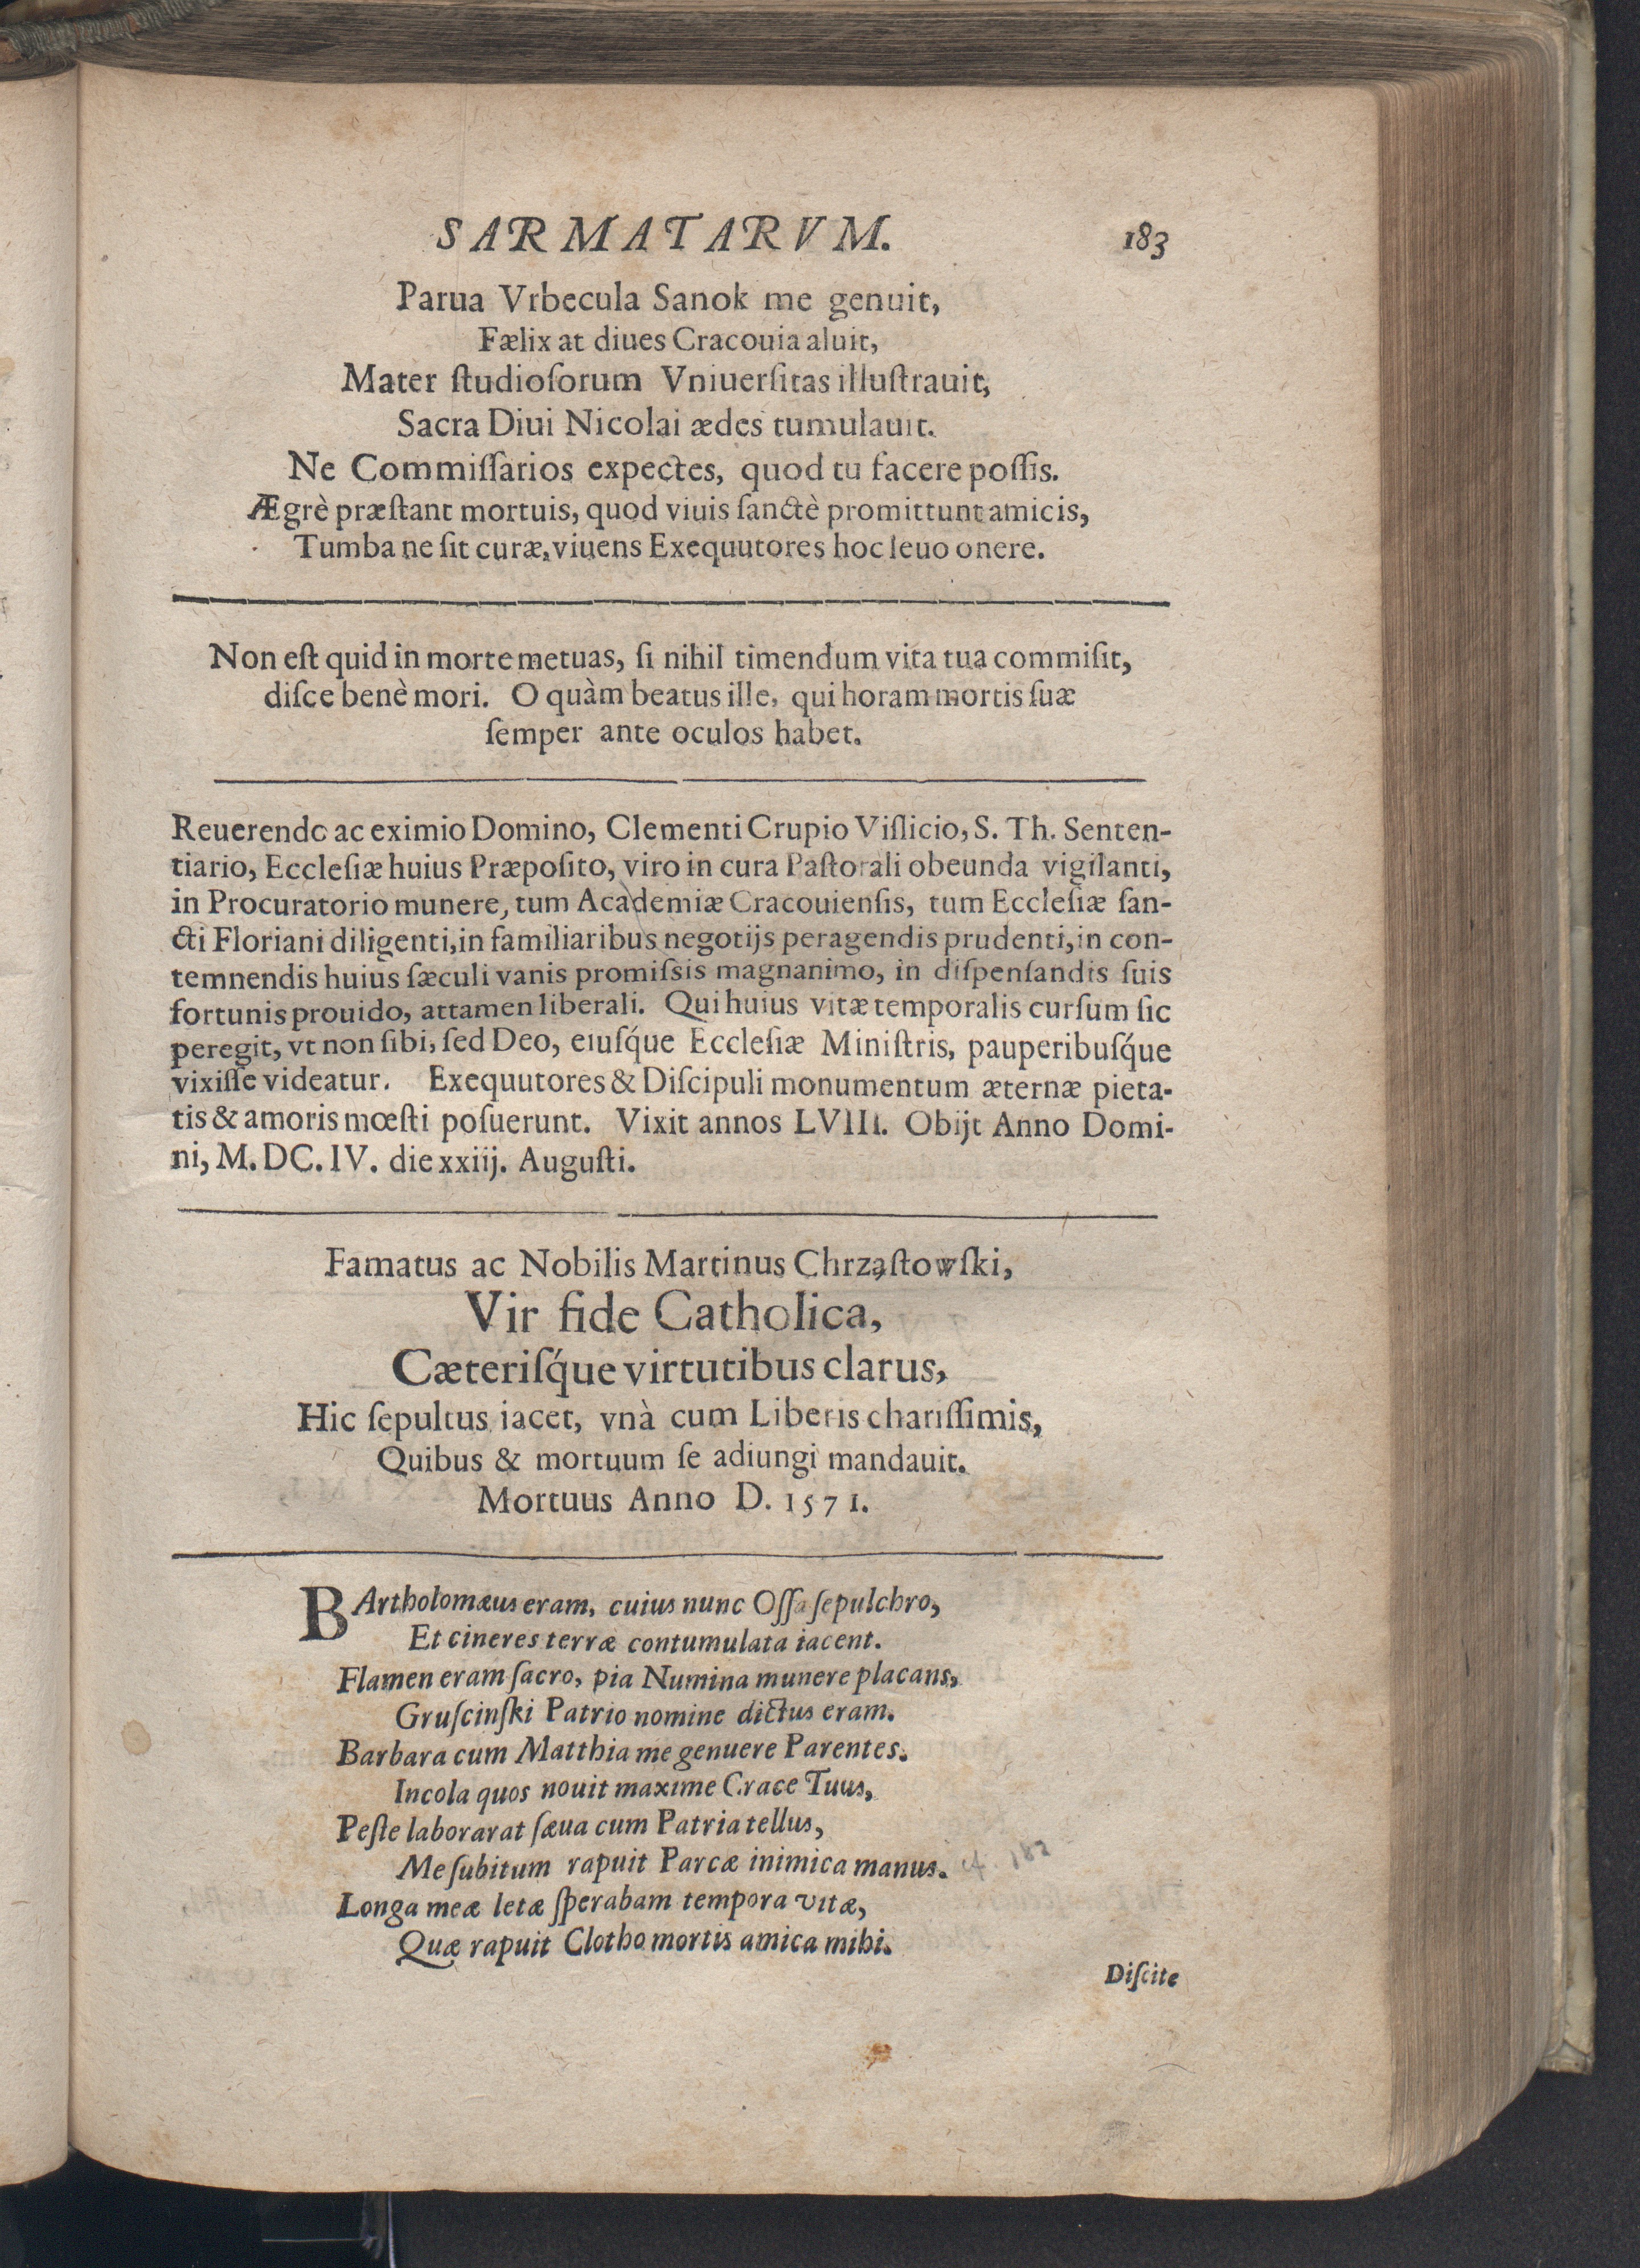 SARMATARVM. 183
Parua Vrbecula Sanok me genuit,
Fælix at diues Cracouia aluit,
Mater ſtudioſorum Vniuerſitas illuſtrauit,
Sacra Diui Nicolai ædes tumulauit.
Ne Commiſſarios expectes, quod tu facere poſſis.
Ægrè præſtant mortuis, quod viuis ſanctè promittunt amicis,
Tumba ne ſit curæ, viuens Exequutores hoc leuo onere.
Non eſt quid in morte metuas, ſi nihil timendum vita tua commiſit,
diſce benè mori. O quàm beatus ille, qui horam mortis ſuæ
ſemper ante oculos habet.
Reuerendo ac eximio Domino, Clementi Crupio Viſlicio, S. Th. Senten-
tiario, Eccleſiæ huius Præpoſito, viro in cura Paſtorali obeunda vigilanti,
in Procuratorio munere, tum Academiæ Cracouienſis, tum Eccleſiæ ſan-
cti Floriani diligenti, in familiaribus negotijs peragendis prudenti, in con-
temnendis huius ſæculi vanis promiſsis magnanimo, in diſpenſandis ſuis
fortunis prouido, attamen liberali. Qui huius vitæ temporalis curſum ſic
peregit, vt non ſibi, ſed Deo, eiuſq́ue Eccleſiæ Miniſtris, pauperibuſq́ue
vixiſſe videatur. Exequutores & Diſcipuli monumentum æternæ pieta-
tis & amoris mœſti poſuerunt. Vixit annos LVIII. Obijt Anno Domi-
ni, M. DC. IV. die xxiij. Auguſti.
Famatus ac Nobilis Martinus Chrząſtowſki,
Vir fide Catholica,
Cæteriſq́ue virtutibus clarus,
Hic ſepultus iacet, vnà cum Liberis chariſſimis,
Quibus & mortuum ſe adiungi mandauit.
Mortuus Anno D. 1571.
BArtholomæus eram, cuius nunc Oſſa ſepulchro,
Et cineres terræ contumulata iacent.
Flamen eram ſacro, pia Numina munere placans,
Gruſcinſki Patrio nomine dictus eram.
Barbara cum Matthia me genuere Parentes.
Incola quos nouit maxime Crace Tuus,
Peſte laborarat ſæua cum Patria tellus,
Me ſubitum rapuit Parcæ inimica manus. cf. 182
Longa meæ letæ ſperabam tempora vitæ,
Quæ rapuit Clotho mortis amica mihi.
Diſcite